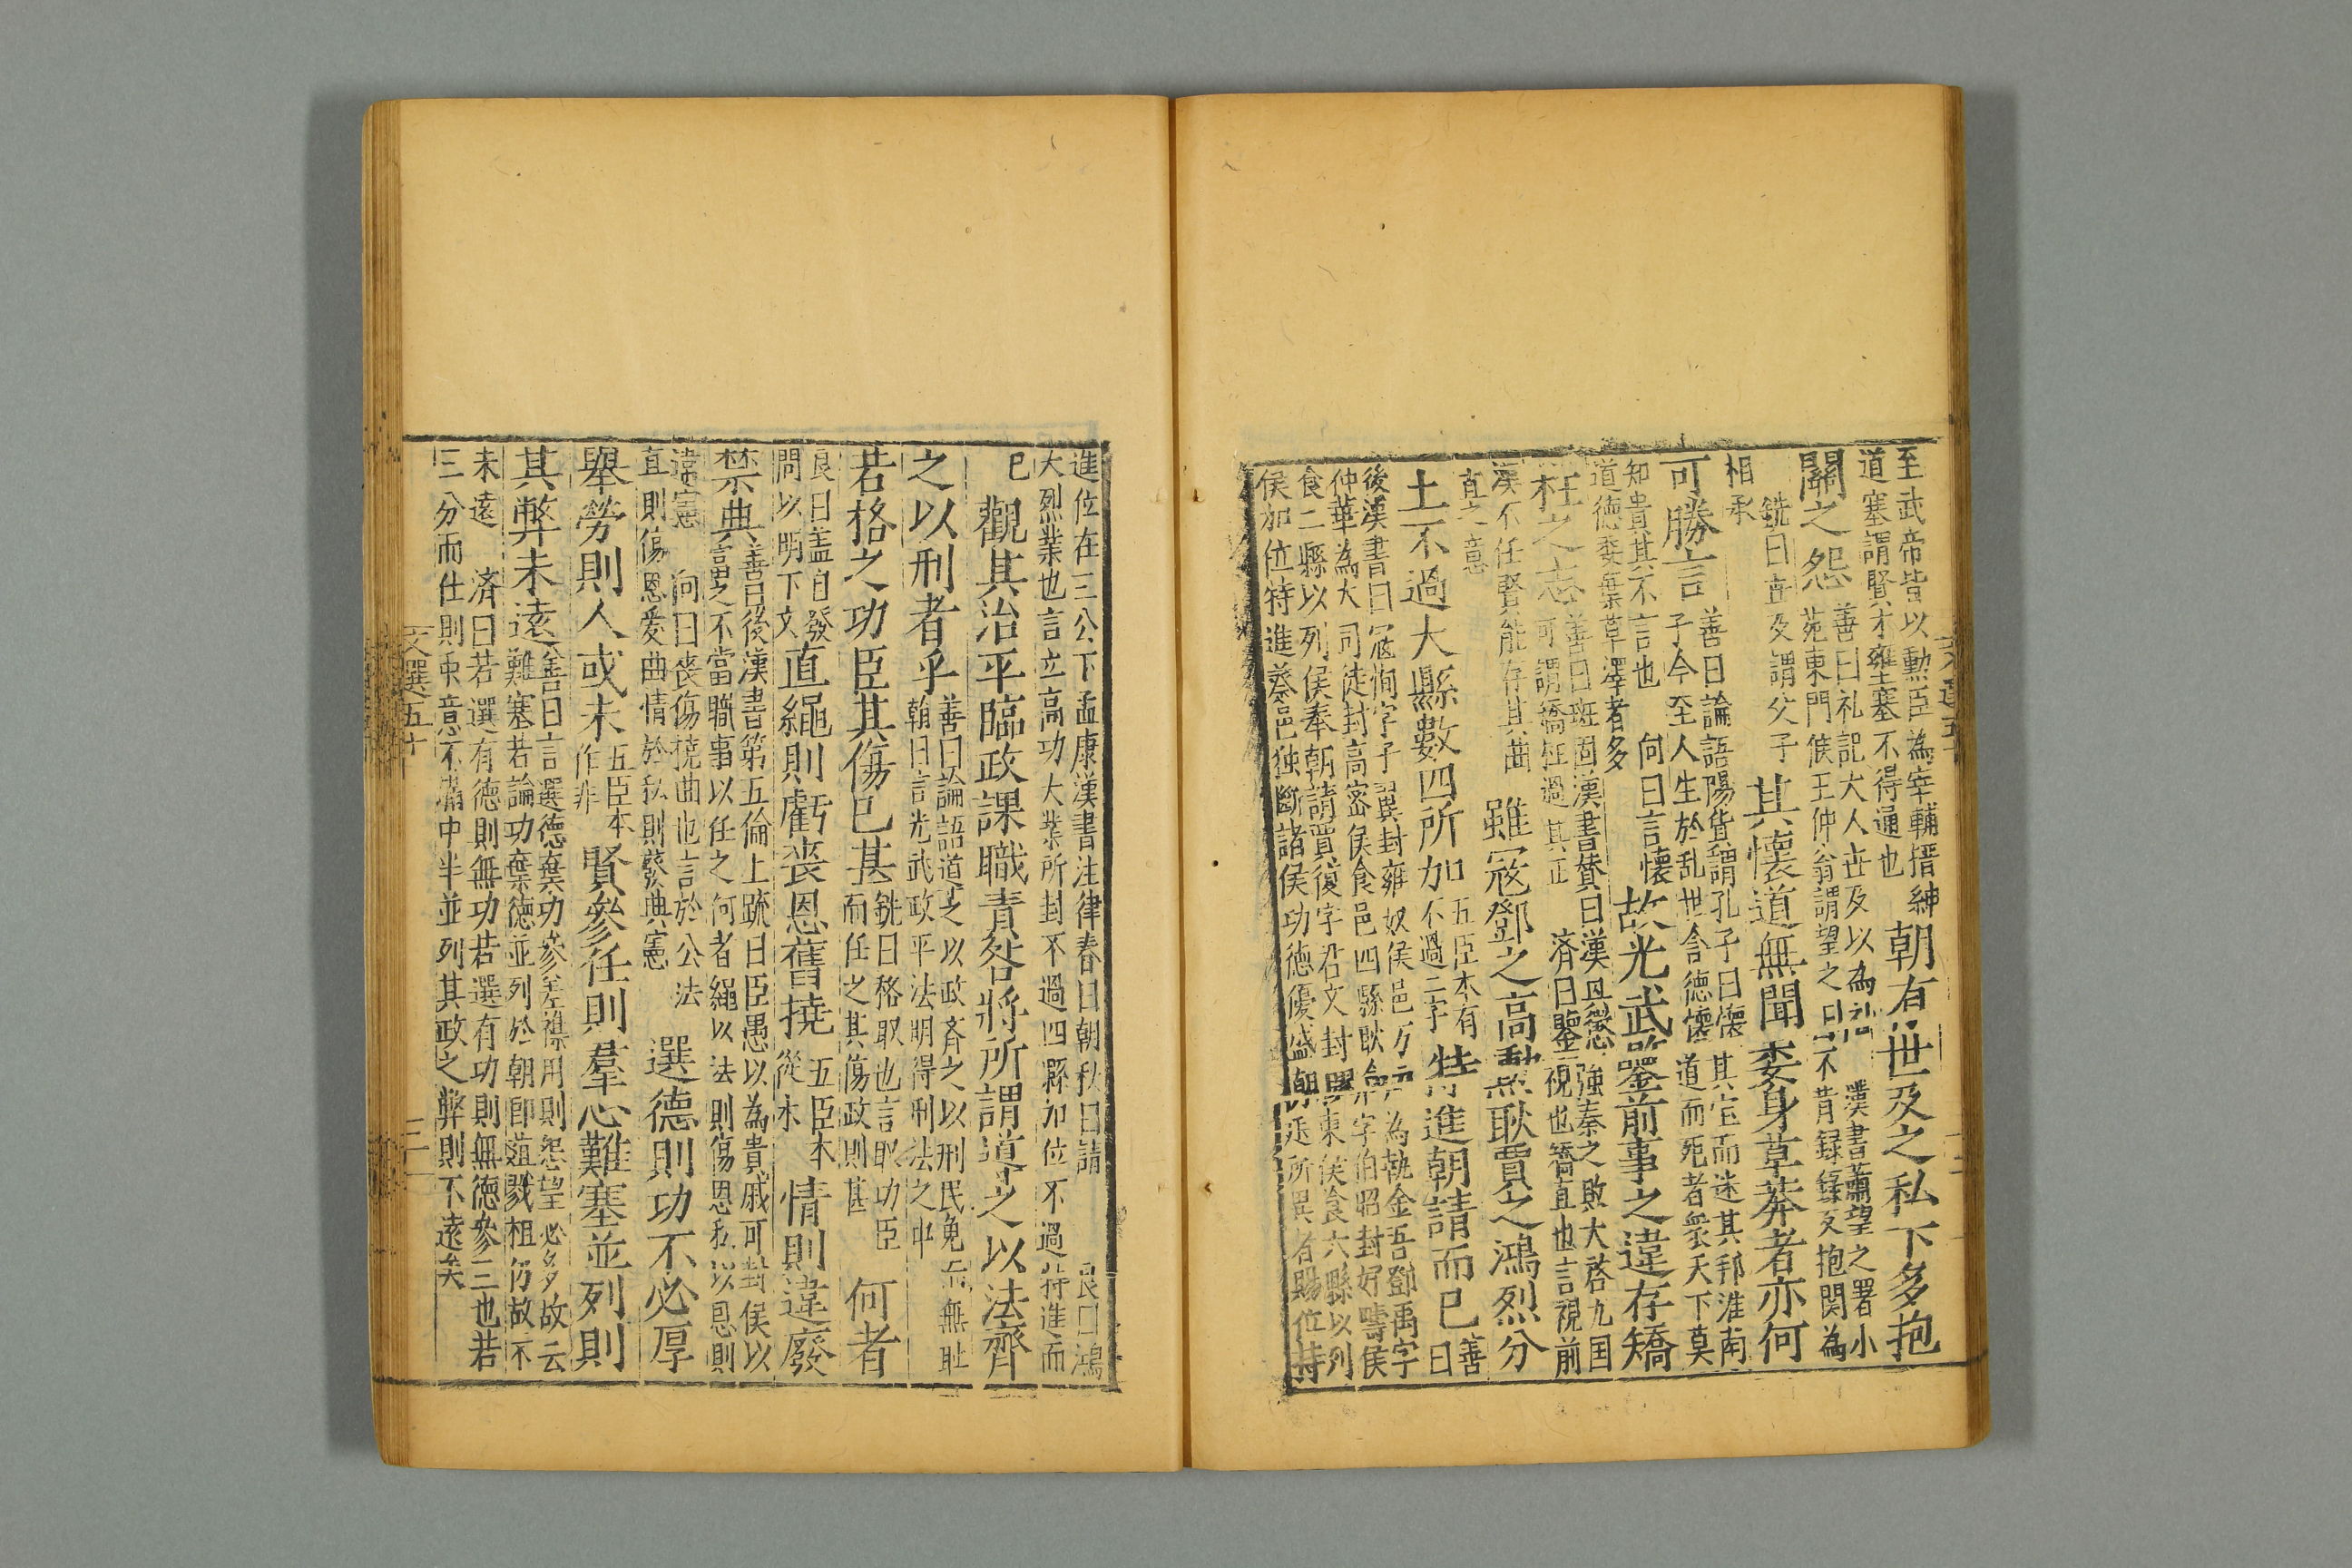 至武帝皆以勲臣為宰輔搢紳
道塞謂賢才雍塞不得通也
朝有世及之私下多抱
闗之怨
善曰礼記大人世及以為礼 漢書蕭望之署小
苑東門候王仲翁謂望之曰不肯録録反抱関為
相承 銑曰世及謂父子
其懷道無聞委身草莽者亦何
可勝言
善曰論語陽貨謂孔子曰懷其宝而迷其邦淮南
子今至人生於乱世含徳懷道而死者衆天下莫
知貴其不言也 向曰言懷
道徳委棄草澤者多
故光武鑒前事之違存矯
枉之志
善曰班固漢書賛曰漢懲強秦之敗大啓九国
可謂矯枉過其正 濟曰鑒視也矯直也言視前
漢不任賢能存其曲
直之意
雖寇鄧之高勲耿賈之鴻烈分
土不過大縣數四所加
五臣本有
不過二字
特進朝請而已
善
曰
後漢書曰寇恂字子翼封雍奴侯邑万戸為執金吾鄧禹字
仲華為大司徒封高密侯食邑四縣耿弇字伯昭封好畤侯
食二縣以列侯奉朝請賈復字君文封膠東侯食六縣以列
侯加位特進蔡邕独斷諸侯功徳優盛朝廷所異者賜位特
進位在三公下孟康漢書注律春曰朝秋曰請 良曰鴻
大烈業也言立高功大業所封不過四縣加位不過特進而
已
觀其治平臨政課職責咎將所謂導之以法齊
之以刑者乎
善曰論語道之以政斉之以刑民免而無耻
翰曰言光武政平法明得刑法之中
若格之功臣其傷已甚
銑曰格取也言取功臣
而任之其傷政則甚
何者
良曰盖自發
問以明下文
直繩則虧丧恩舊撓
五臣本
從木
情則違廢
禁典
善曰後漢書第五倫上䟽曰臣愚以為貴戚可封侯以
冨之不當職事以任之何者繩以法則傷恩私以恩則
違憲 向曰丧傷撓曲也言於公法
直則傷恩愛曲情於私則廢典憲
選德則功不必厚
舉勞則人或未
五臣本
作非
賢參任則羣心難塞並列則
其弊未遠
善曰言選徳棄功參差襍用則怨望必多故云
難塞若論功棄徳並列於朝即葅戮相仍故不
未遠 濟曰若選有徳則無功若選有功則無徳參三也若
三分而仕則衆意不滿中半並列其政之弊則不遠矣
文選五十
三